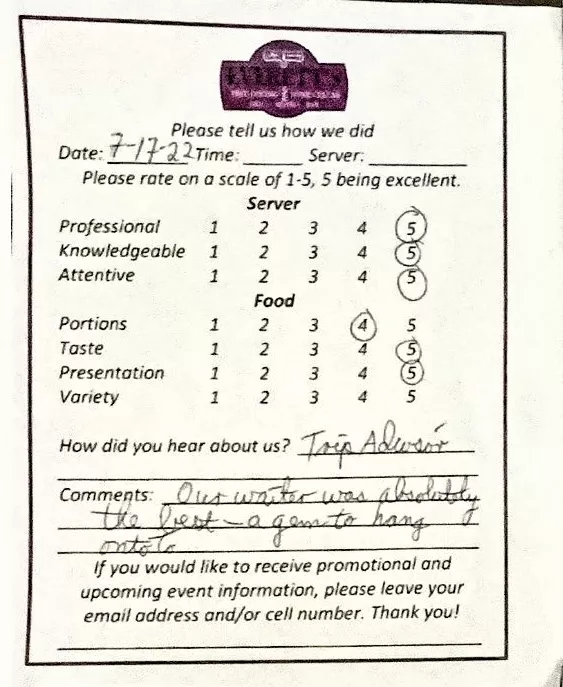 Please tell us how we did
Date: 7-17-22 Time: ______ Server: ________
Please rate on a scale of 1-5, 5 being excellent.
Server
Professional 1 2 3 4 5
Knowledgeable 1 2 3 4 5
Attentive 1 2 3 4 5
Food
Portions 1 2 3 4 5
Taste 1 2 3 4 5
Presentation 1 2 3 4 5
Variety 1 2 3 4 5
How did you hear about us? Trip Advisor
Comments: Our waiter was absolutely
the best - a gem to hang
onto
If you would like to receive promotional and
upcoming event information, please leave your
email address and/or cell number. Thank you!